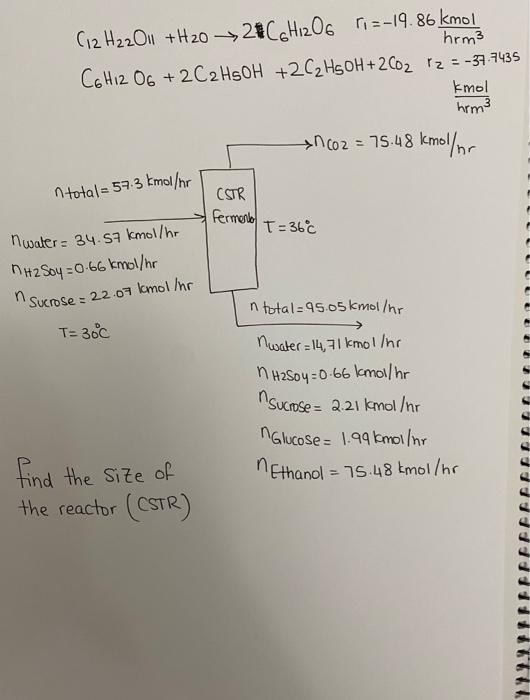 C12 H22O11 + H2O → 2 C6H12O6 r1 = -19.86 kmol/hrm³
C6H12 O6 + 2C2H5OH + 2C2H5OH + 2CO2 r2 = -37.7435 kmol/hrm³
nCO2 = 75.48 kmol/hr
n total = 57.3 kmol/hr
CSTR
Fermenb
T = 36°C
nwater = 34.57 kmol/hr
nH2SO4 = 0.66 kmol/hr
n Sucrose = 22.07 kmol/hr
T = 30°C
n total = 95.05 kmol/hr
nwater = 14,71 kmol/hr
nH2SO4 = 0.66 kmol/hr
nSucrose = 2.21 kmol/hr
nGlucose = 1.99 kmol/hr
nEthanol = 75.48 kmol/hr
find the size of
the reactor (CSTR)